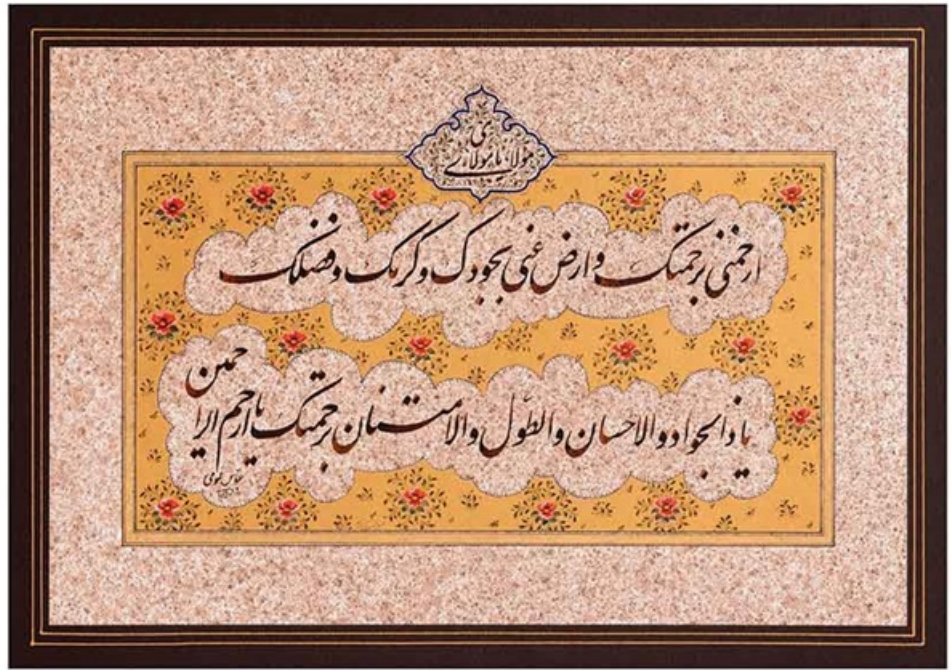 مولای یا مولای
ارحمنی برحمتک و ارض عنی بجودک و کرمک و فضلک
یا ذالجود و الاحسان و الطول و الامتنان برحمتک یا ارحم الراحمین